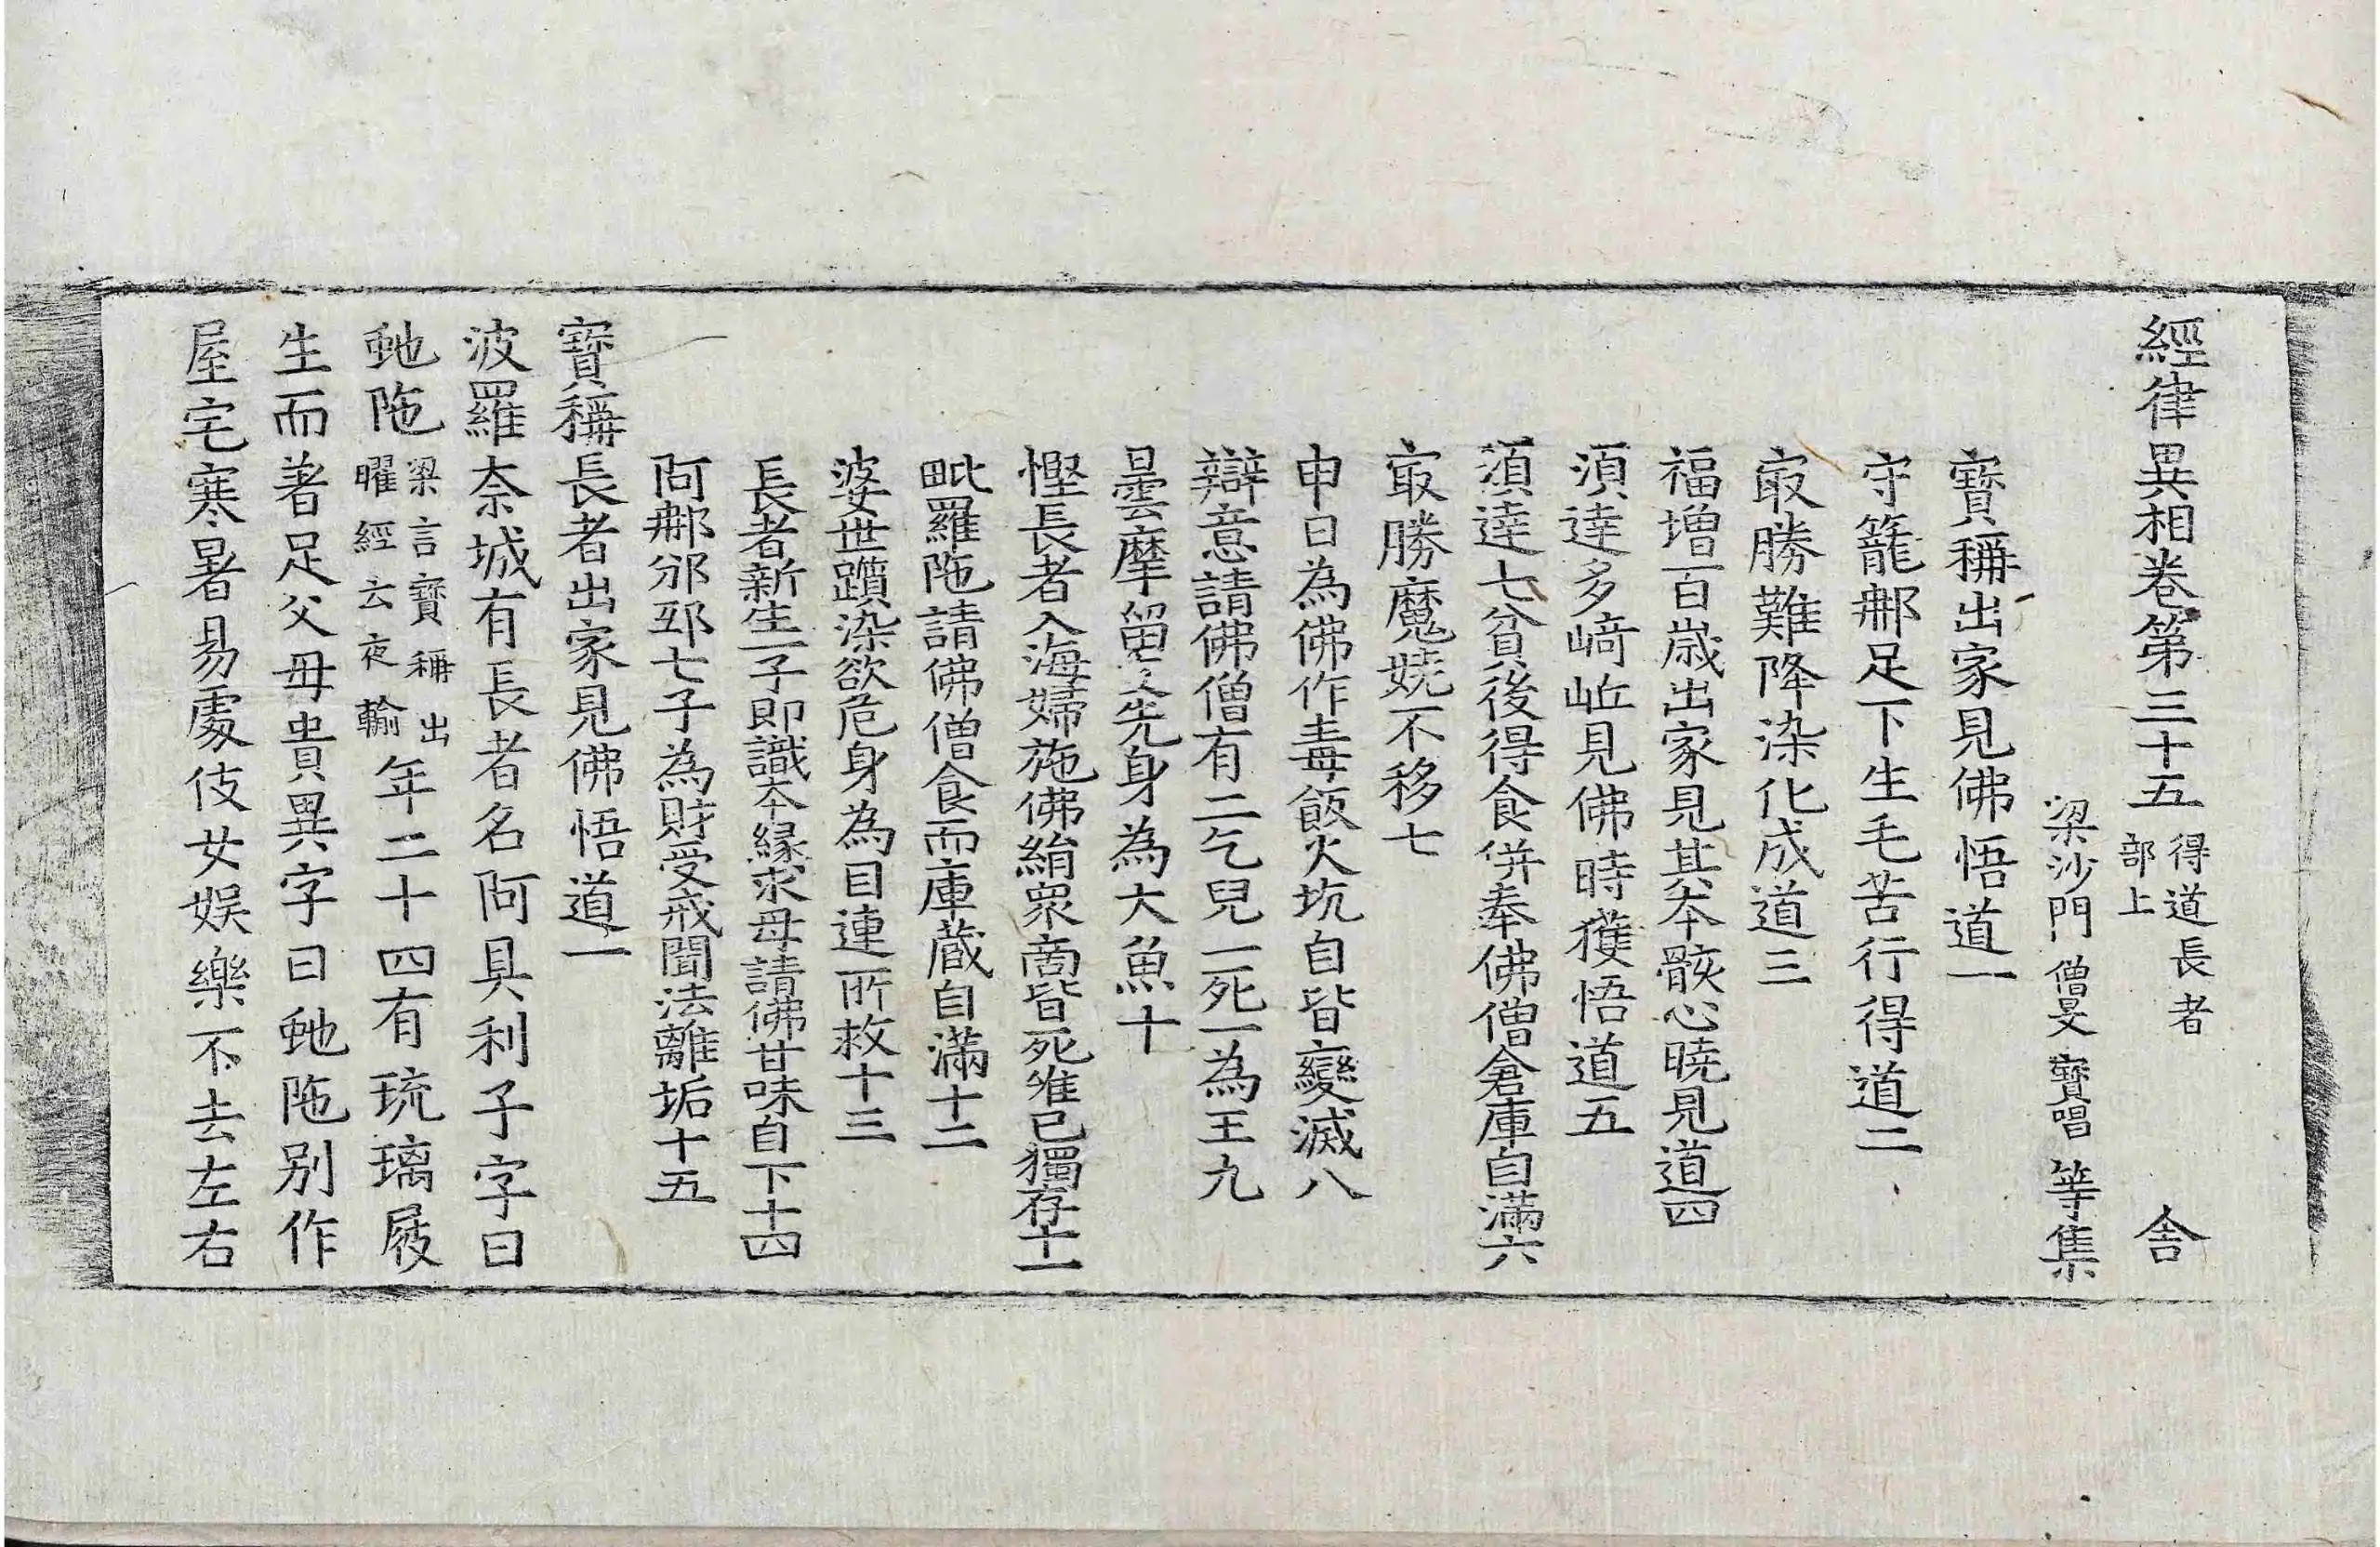 經律異相卷第三十五 得道長者部上 舍
梁沙門僧旻寶唱等集
寶稱出家見佛悟道一
守籠那足下生毛苦行得道二
㝡勝難降染化成道三
福增百歲出家見其本骸心曉見道四
須達多崎岴見佛時獲悟道五
須達七貧後得食併奉佛僧倉庫自滿六
㝡勝魔嬈不移七
申日為佛作毒飯火坑自皆變滅八
辯意請佛僧有二乞兒一死一為王九
曇摩留支先身為大魚十
慳長者入海婦施佛絹眾商皆死唯已獨存十一
毗羅陁請佛僧食而庫蔵自滿十二
婆世躓染欲危身為目連所救十三
長者新生一子即識本緣求母請佛甘味自下十四
阿那邠邳七子為財受戒聞法離垢十五
寶稱長者出家見佛悟道一
波羅奈城有長者名阿具利子字曰
虵陁 梁言寶稱出曜經云夜輸 年二十四有琉璃屐
生而著足父母貴異字曰虵陁別作
屋宅寒暑易處伎女娛樂不去左右